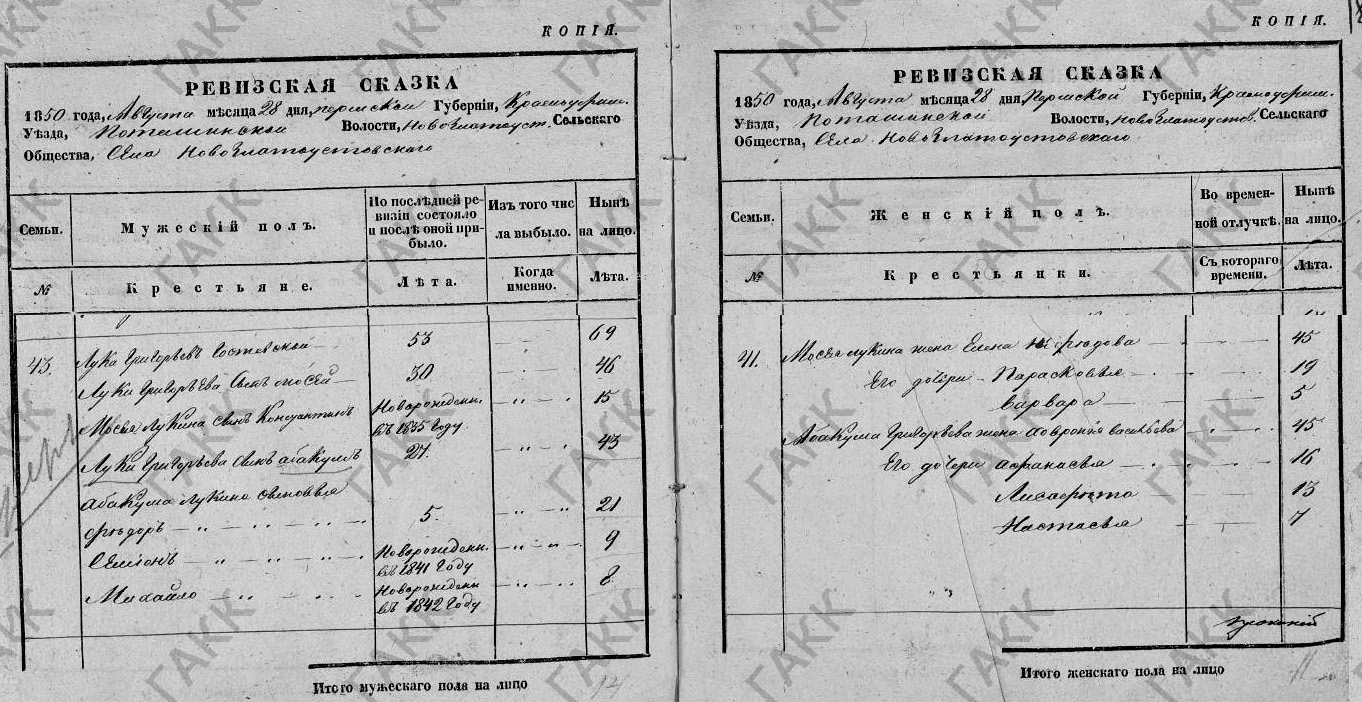 КОПІЯ.
РЕВИЗСКАЯ СКАЗКА
1850 года, Августа мѣсяца 28 дня, Пермской Губерніи, Красноуфим.
Уѣзда, Поташинской Волости, Новозлатоуст. Сельскаго
Общества, Села Новозлатоустовскаго
Семьи.
Мужескій полъ.
По послѣдней ревизіи состояло и послѣ оной прибыло.
Изъ того числа выбыло.
Нынѣ на лицо.
№
Крестьяне.
Лѣта.
Когда именно.
Лѣта.
43. Лука Григорьевъ 53 69
Луки Григорьева сынъ Мосей 30 46
Мосея Лукина сынъ Константинъ Новорожденн. въ 1835 году 15
Луки Григорьева сынъ Абакумъ 27. 43
Абакума Лукина сыновья
Фёдоръ 5. 21
Семёнъ Новорожденн. въ 1841 году 9
Михайло Новорожденн въ 1842 году 8
Итого мужескаго пола на лицо
КОПІЯ.
РЕВИЗСКАЯ СКАЗКА
1850 года, Августа мѣсяца 28 дня, Пермской Губерніи, Красноуфим.
Уѣзда, Поташинской Волости, Новозлатоустов. Сельскаго
Общества, Села Новозлатоустовскаго
Семьи.
Женскій полъ.
Во временной отлучкѣ.
Нынѣ на лицо.
№
Крестьянки.
Съ котораго времени.
Лѣта.
41. Мосея Лукина жена Елена 45
Его дочери Парасковья 19
Варвара 5
Абакума Григорьева жена Ховронія Васильева 45
Его дочери Афанасья 16
Лисафьта 13
Настасья 7
Итого женскаго пола на лицо
ГАКК